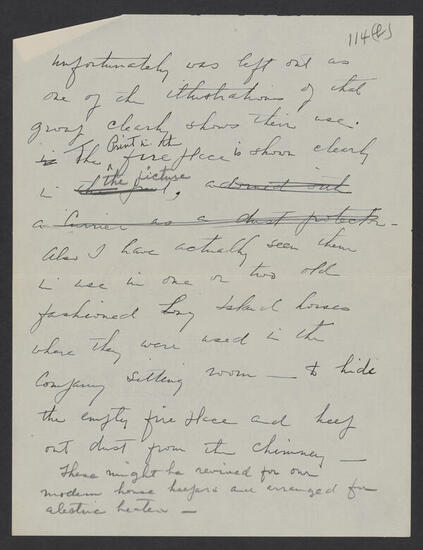 114(&)
unfortunately was left out as
one of the illustrations of that
group clearly shows their use.
The Print in the fire place is shown clearly
in the picture, adorned with
a Currier as a dust protector -
Also I have actually seen them
in use in one or two old
fashioned Long Island houses
where they were used in the
Company sitting room — to hide
the empty fire place and keep
out dust from the chimney —
These might be revived for our
modern house keepers are arranged for
electric heater —